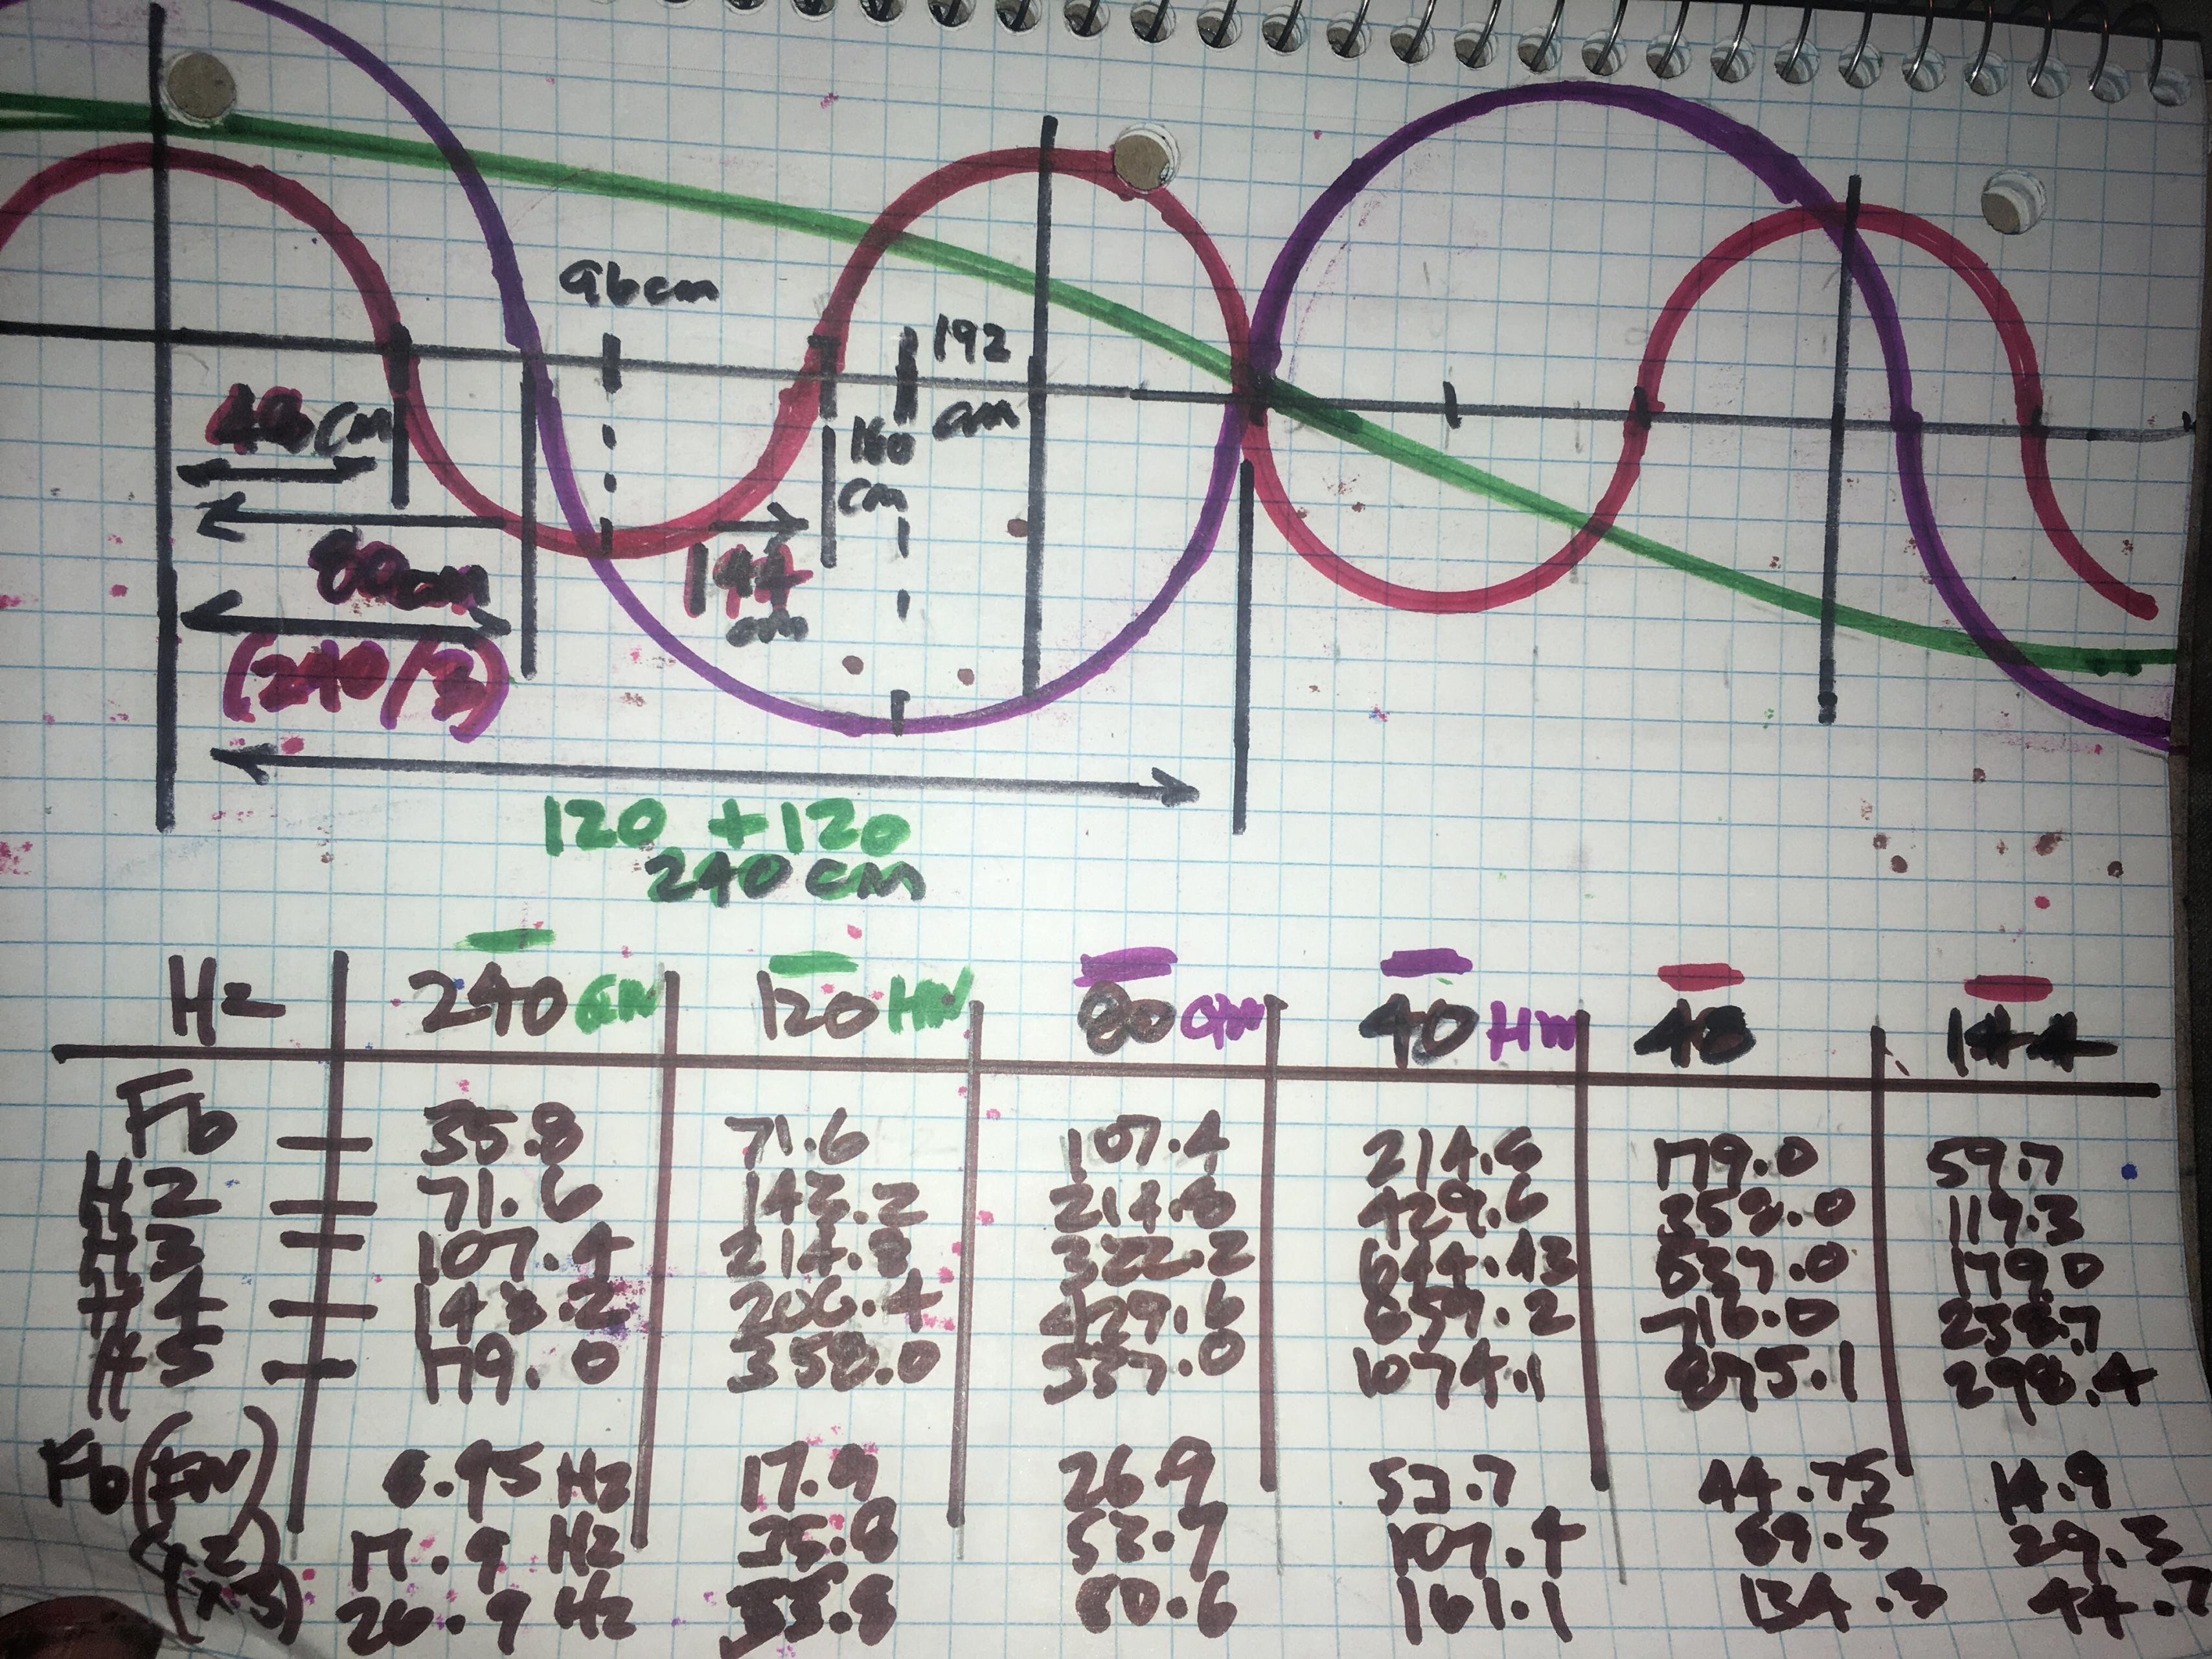 96cm
192
cm
48cm
160
cm
80cm
144
cm
(240/3)
120 + 120
240 cm
Hz 240 QW 120 HW 80 QW 40 HW 48 144
Fb — 35.8 71.6 107.4 214.8 179.0 59.7
H2 — 71.6 143.2 214.8 429.6 358.0 119.3
H3 — 107.4 214.8 322.2 644.43 537.0 179.0
H4 — 143.2 286.4 429.6 859.2 716.0 238.7
H5 — 179.0 358.0 537.0 1074.1 875.1 298.4
Fb 8.95 Hz 17.9 26.9 53.7 44.75 14.9
(x2) 17.9 Hz 35.8 53.7 107.4 89.5 29.3
(x3) 26.9 Hz 80.6 161.1 134.3 44.7